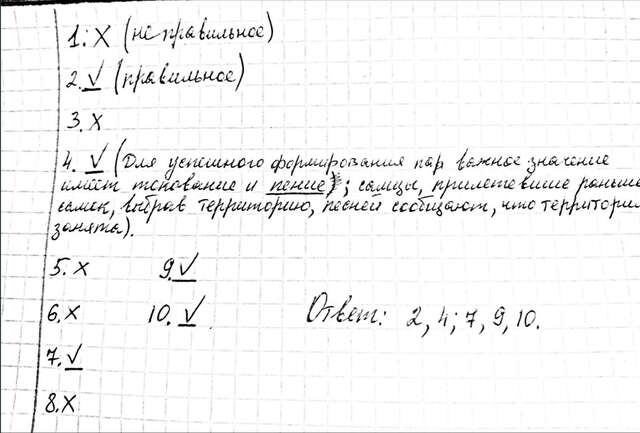 1. X (не правильное)
2. ✓ (правильное)
3. X
4. ✓ (Для успешного формирования пар важное значение
имеет токование и пение); самцы, прилетевшие раньше
самок, выбрав территорию, песней сообщают, что территория
занята).
5. X 9. ✓
6. X 10. ✓ Ответ: 2, 4; 7, 9, 10.
7. ✓
8. X